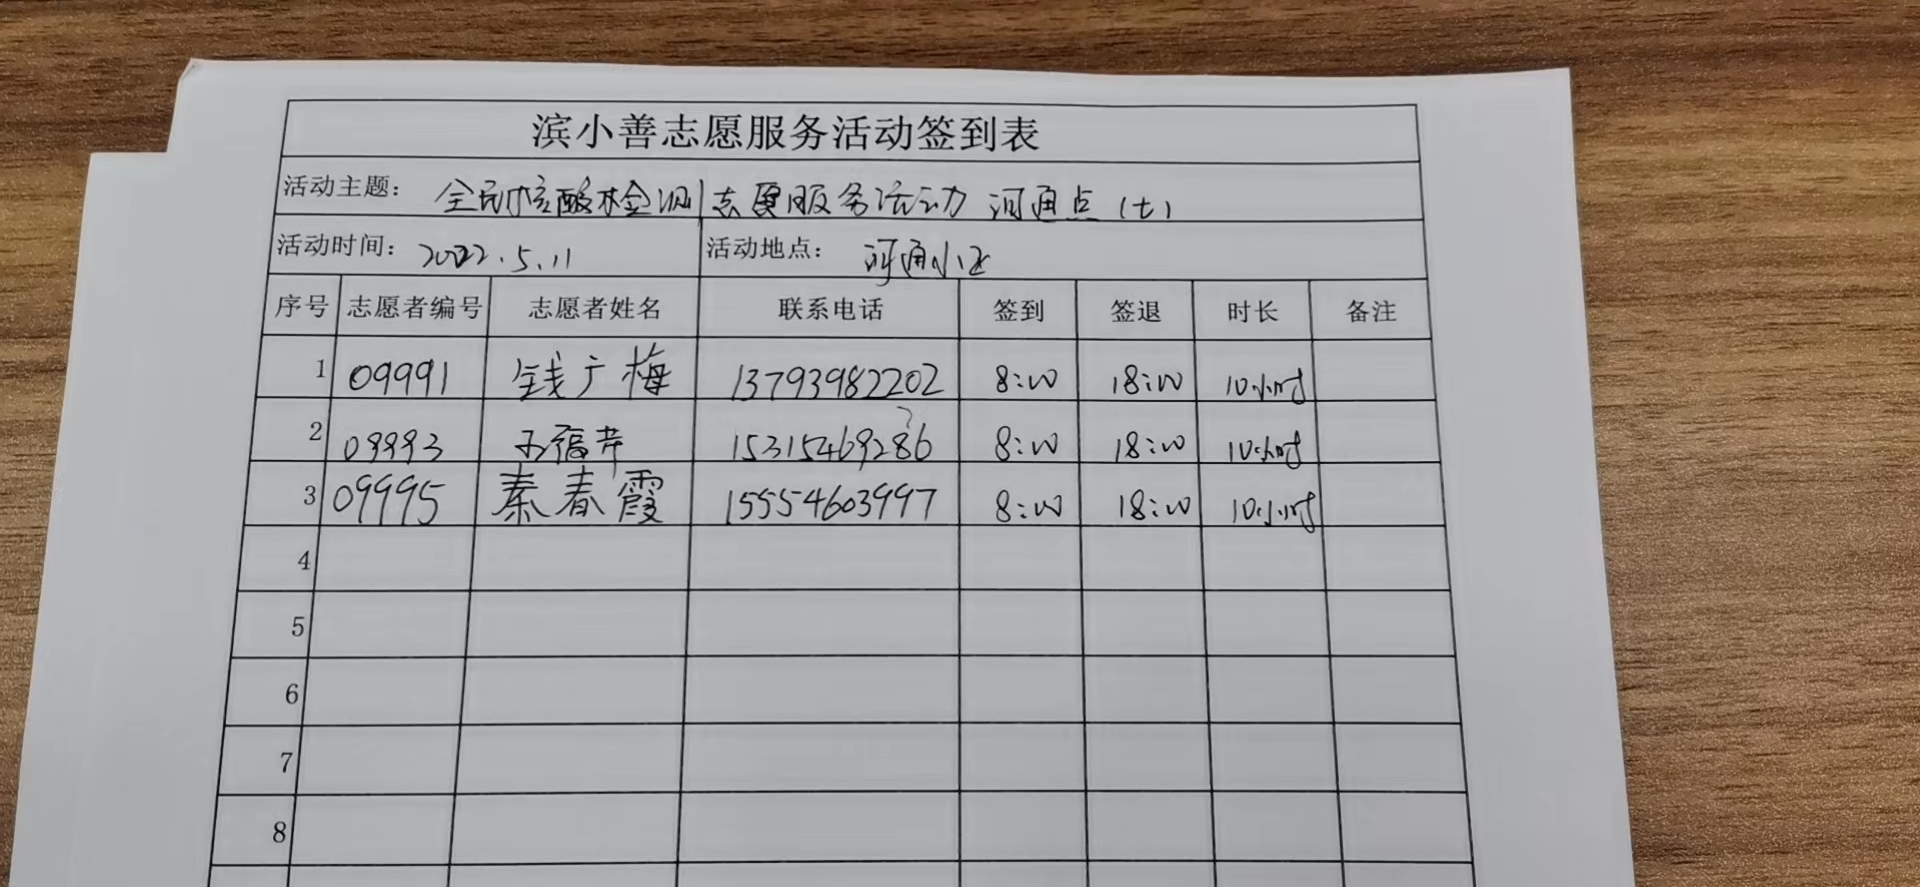 滨小善志愿服务活动签到表
活动主题: 全民核酸检测志愿服务活动 河通点(七)
活动时间: 2022.5.11 活动地点: 河通小区
序号 志愿者编号 志愿者姓名 联系电话 签到 签退 时长 备注
1 09991 钱广梅 13793982202 8:00 18:00 10小时
2 09993 15315469286 8:00 18:00 10小时
3 09995 秦春霞 15554603997 8:00 18:00 10小时
4
5
6
7
8